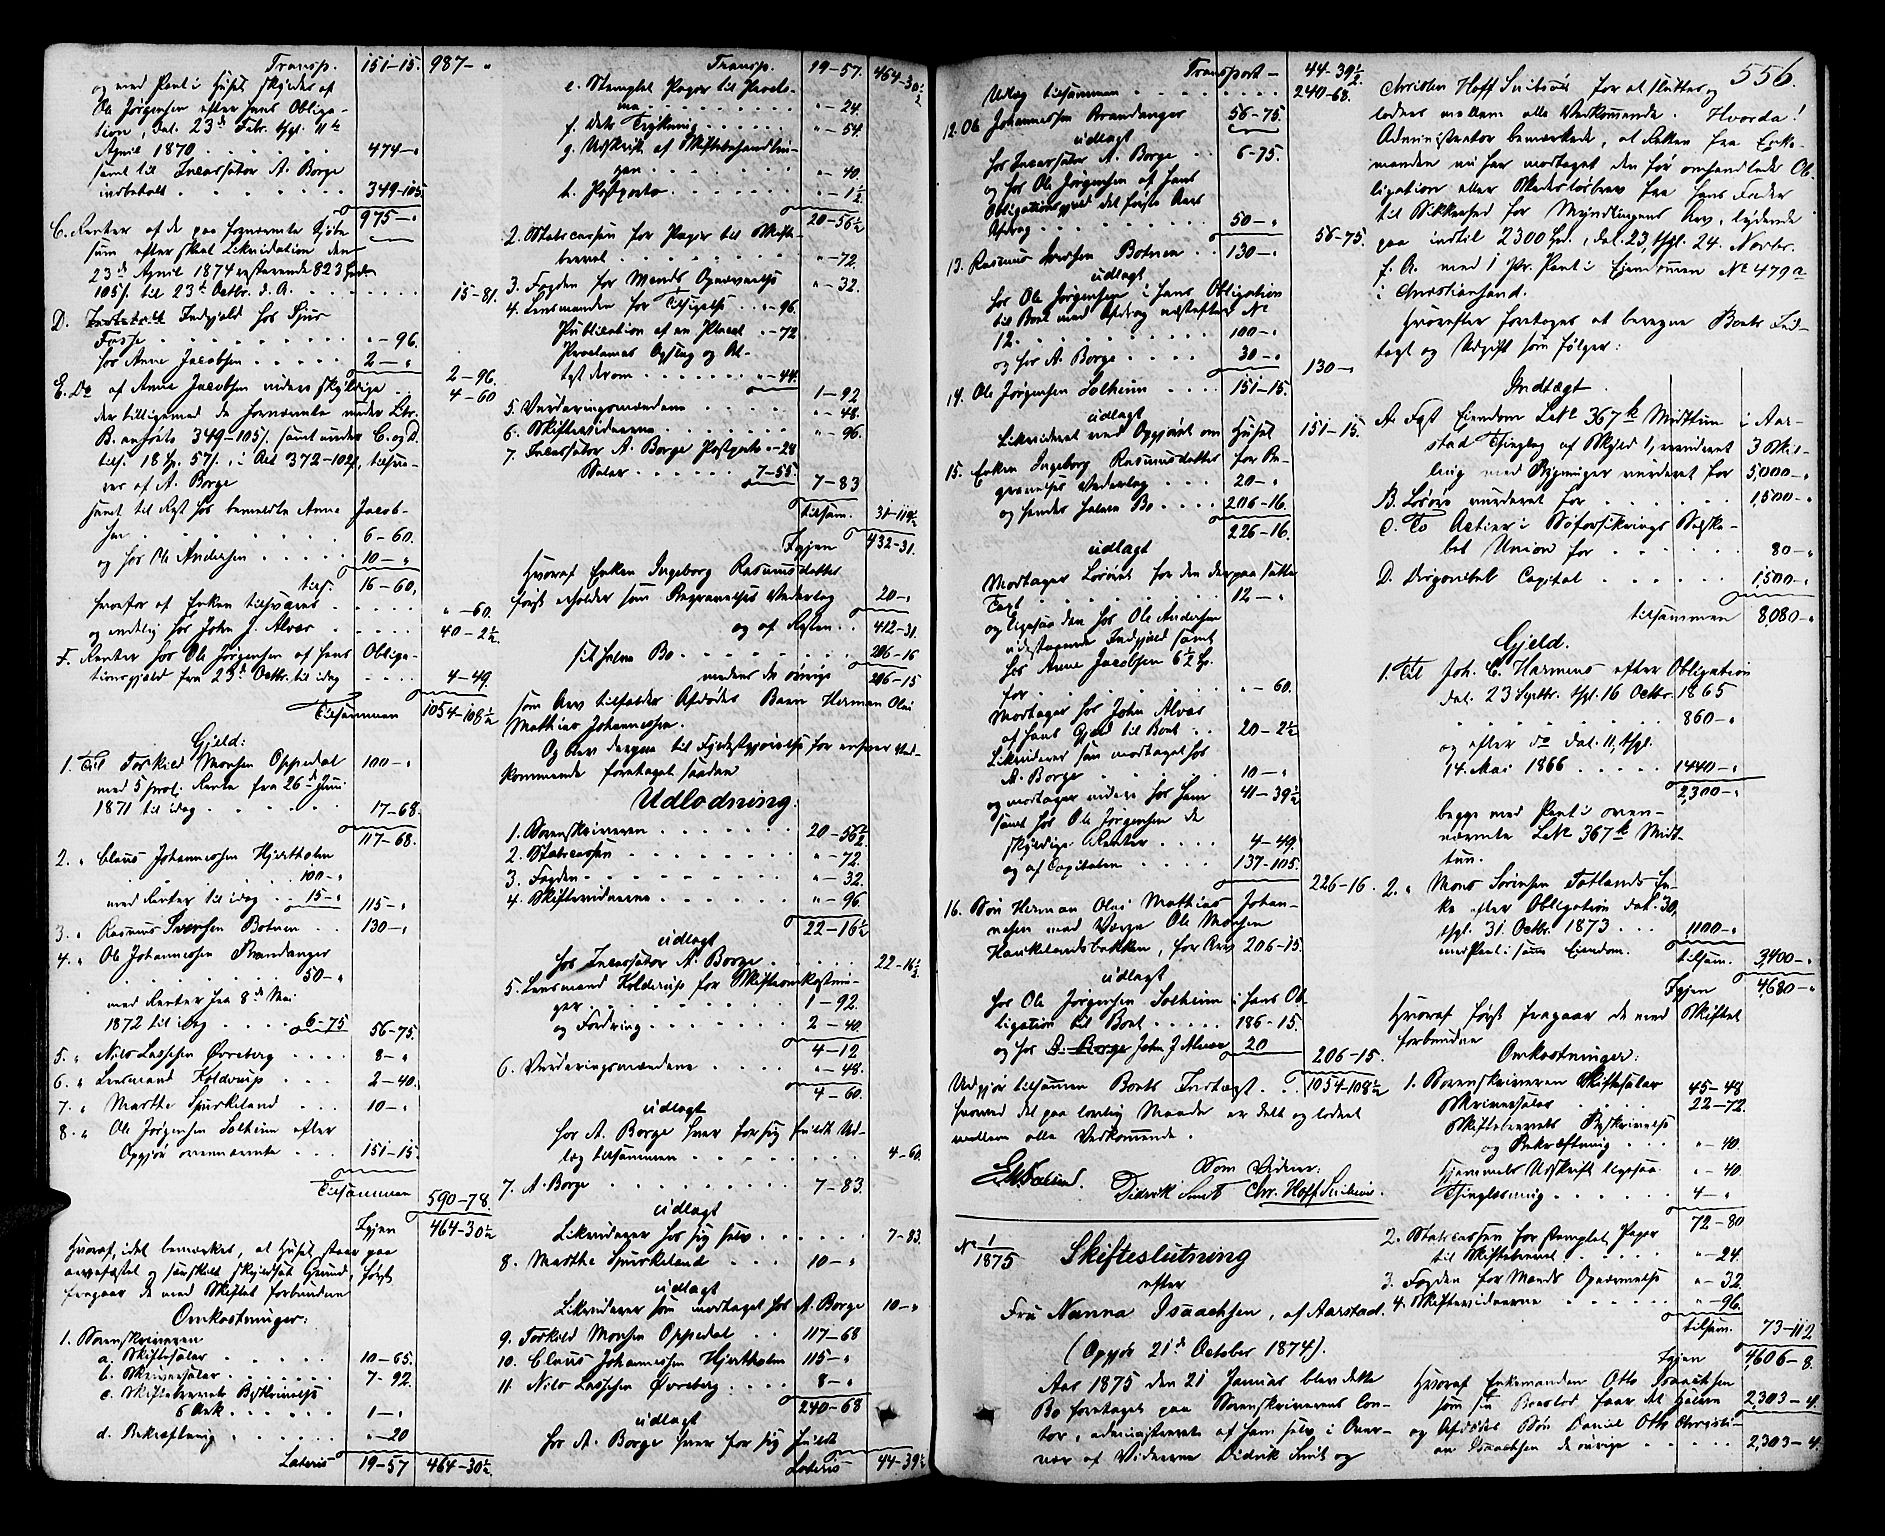 Transp. 151-15. 987- "
og med Pant i Huset skyldes af
Ole Jørgensen efter hans Obliga-
tion, dat. 23de Febr. thgl. 11te
April 1870 . . . 474- "
samt til Incassator A. Borge
indbetalt . . . 349-105
975- "
C. Renter af de paa fornævnte
sum efter skeet Likvidation den
23de April 1874 resterende 823
105/. til 23de Octbr. d. A. . . . 15-81.
D. Indgjæld hos Sjur
Fosse . . . "-96.
hos Anne Jacobsen . . . 2- "
2-96.
E. Do af Anne Jacobsen videre skyldige . . 4-60
der tilligemed de fornævnte under Litr.
B. anførte 349-105/. samt under C. og D.
tils. 18 57/., i Alt 372-102/., tilsva-
res af A. Borge
samt til Rest hos bemeldte Anne Jacob-
sen . . . 6-60.
og hos Ole Andersen . . . 10- "
tils. 16-60,
hvorfor af Enken tilsvares . . . "-60.
og endelig hos John J. Alvær . . . 40-2½.
F. Renter hos Ole Jørgensen af hans Obliga-
tionsgjæld fra 23de Octbr. til idag . . . 4-49.
Tilsammen 1054-108½
Gjeld:
1. Til Torkild Monsen Oppedal 100- "
med 5 proC. Rente fra 26de Juni
1871 til idag . . . 17-68.
117-68.
2. " Claus Johannesen Hjertholm
. . . 100- "
med Renter til idag . . 15- " 115- "
3. " Rasmus Iversen Botnen . . 130- "
4. " Ole Johannessen Brandanger
. . . 50- "
med Renter fra 8de Mai
1872 til idag . . . 6-75 56-75.
5. " Nils Lassesen Øvreberg . . . 8- "
6. " Lensmand Koldrup . . . 2-40.
7. " Marthe Spurkeland . . . 10- "
8. " Ole Jørgensen Solheim efter
Opgjør ovennævnte . . . 151-15.
Tilsammen 590-78.
Igjen 464-30½
Hvoraf, idet bemærkes, at Huset staar paa
arvefæstet og særskilt skyldsat Grund, først
fragaar de med Skiftet forbundne
Omkostninger:
1. Sorenskriveren
a. Skiftesalær . . . 10-65.
b. Skriversalær . . . 7-92.
c. Skiftebrevets Beskrivelse
5 Ark . . . 1- "
d. Bekræftning . . . "-20
Lateris 19-57 464-30½.
Transp. 19-57. 464-30½
e. Stemplet Papir til Procla-
ma . . . "-24.
f. dets Trykning . . . "-54.
g. Udskrift af Skiftebehandlin-
gen . . . "-40.
h. Postporto . . . "-1½
20-56½
2. Statscassen for Papir til Skifte-
brevet . . . "-72.
3. Fogden for Mænds Opnævnelse "-32.
4. Lensmanden for Tilsigelse . . "-96.
Publication af en Placat . . "-72
Proclamas Opslag og At-
test derom . . . "-44.
1-92
5. Vurderingsmændene . . . "-48.
6. Skiftevidnerne . . . "-96.
7. Incassator A. Borge Postporto "-28
Salær . . . 7-55 7-83
tilsam. 31-119½
Igjen 432-31.
Hvoraf Enken Ingeborg Rasmusdatter
først erholder som Begravelses Vederlag 20- "
og af Resten . . 412-31.
sit halve Bo . . . 206-16
medens de øvrige 206-15
som Arv tilfalder Afdødes Barn Herman Olai
Mathias Johannessen.
Og blev derpaa til Fyldestgjørelse for enhver Ved-
kommende foretaget saadan
Udlodning:
1. Sorenskriveren . . . 20-56½
2. Statscassen . . . "-72.
3. Fogden . . . "-32.
4. Skiftevidnerne . . . "-96.
22-16½
udlagt
hos Incassator A. Borge . . . 22-16½
5. Lensmand Koldrup for Skifteomkostnin-
ger . . . 1-92.
og Fordring . . . 2-40.
4-12
6. Vurderingsmændene . . . "-48.
4-60.
udlagt
hos A. Borge hver for sig fuldt Ud-
læg tilsammen . . . 4-60.
7. A. Borge . . . 7-83.
udlagt
Likviderer hos sig selv . . . 7-83.
8. Marthe Spurkeland . . . 10- "
udlagt
Likviderer som modtaget hos A. Borge 10- "
9. Torkild Monsen Oppedal . . 117-68
10. Claus Johannessen Hjertholm 115- "
11. Nils Lassesen Øvreberg . . . 8- "
240-68
udlagt
hos A. Borge hver for sig fuldt
Lateris 44-39½
Transport - 44-39½
Udlæg tilsammen . . . 240-68.
12. Ole Johannessen Brandanger 56-75.
udlagt
hos Incassator A. Borge . . 6-75.
og hos Ole Jørgensen af hans
Obligationsgjæld det første Aars
Afdrag . . . 50- "
56-75.
13. Rasmus Iversen Botnen . . 130- "
udlagt
hos Ole Jørgensen i hans Obligation
til Boet med Afdrag næstefter No
12. . . . 100- "
og hos A. Borge . . . 30- "
130- "
14. Ole Jørgensen Solheim . . . 151-15.
udlagt
Likvideret ved Opgjøret om Huset 151-15.
15. Enken Ingeborg Rasmusdatter for Be-
gravelses Vederlag . . . 20- "
og hendes halve Bo . . . 206-16.
226-16.
udlagt
Modtager Løsøret for den derpaa satte
Taxt . . . 12- "
og ligesaa den hos Ole Andersen
udestaaende Indgjæld samt
hos Anne Jacobsen 6½
for . . . "-60.
Modtager hos John Alvær
af hans Gjæld til Boet . . 20-2½
Likviderer som modtaget hos
A. Borge . . . 10- "
og modtager videre hos ham 41-39½
samt hos Ole Jørgensen de
skyldige Renter . . . 4-49.
og af Capitalen . . . 137-105.
226-16.
16. Søn Herman Olai Mathias Johan-
nesen med Værge Ole Monsen
Haukelandsbakken, for Arv 206-15.
udlagt
hos Ole Jørgensen Solheim i hans Ob-
ligation til Boet . . . 186-15.
og hos A. Borge John J Alvær 20
206-15.
Udgjør tilsammen Boets Indtægt . . 1054-108½
hvormed det paa lovlig Maade er delt og loddet
mellem alle Vedkommende.
Som Vidner:
Didrik Smit Chr. Hoff
No 1/1875 Skifteslutning
efter
Fru Nanna Isaachsen, af Aarstad.
(Opgjør 21de October 1874).
Aar 1875 den 21 Januar blev dette
Bo foretaget paa Sorenskriverens Con-
tor, administreret af ham selv i Over-
vær af Vidnerne Didrik Smit og
556.
Christen Hoff for at sluttes og
loddes mellem alle Vedkommende. Hvorda!
Administrator bemærkede, at Retten fra Enke-
manden nu har modtaget den før omhandlede Ob-
ligation eller Skadesløsbrev fra hans Fader
til Sikkerhed for Myndlingens Arv, lydende
paa indtil 2300 Spd., dat. 23, thgl. 24. Novbr.
f. A. med 1 Pr. Pant i Eiendommen No 479a
i Christiansand.
Hvorefter foretages at beregne Boets Ind-
tægt og Udgift som følger:
Indtægt.
A. Fast Eiendom L.No 367 b Midttun i Aar-
stad Thinglag af Skyld 1, vurderet 3 Skil-
ling med Bygninger vurderet for 5,000- "
B. Løsøre vurderet for . . . 1,500- "
C. To Actier i Søforsikrings Selska-
bet Union for . . . 80- "
D. Disponibel Capital . . . 1,500- "
tilsammen 8,080- "
Gjeld.
1. Til Joh. C. Harmens efter Obligation
dat. 23 Septbr. thgl. 16 Octbr. 1865
. . . 860- "
og efter do dat. 11, thgl.
14. Mai 1866 . . . 1440- "
2,300- "
begge med Pant i oven-
nævnte L.No 367 b Midt-
tun.
2. " Mons Sørensen Totlands En-
ke efter Obligation dat. 30,
thgl. 31. Octbr. 1873 . . . 1100- "
med Pant i samme Eiendom. tilsam. 3,400- "
Igjen 4,680- "
Hvoraf først fragaar de med Skiftet
forbundne
Omkostninger:
1. Sorenskriveren Skiftesalær 45-48
Skriversalær . . . 22-72.
Skiftebrevets Beskrivelse
og Bekræftning . . . "-40.
Hjemmels Udskrift ligesaa "-40
Thinglæsning . . . 4- "
72-80
2. Statscassen for stemplet Papir
til Skiftebrevet . . . "-24.
3. Fogden for Mænds Opnævnelse "-32.
4. Skiftevidnerne . . . "-96.
tilsam. 73-112
Igjen 4606-8.
Hvoraf Enkemanden Otto Isaachsen
som sin Boeslod faar det Halve 2,303-4.
og Afdødes Søn Daniel Otto Christi-
an Isaachsen de øvrige . . . 2,303-4.